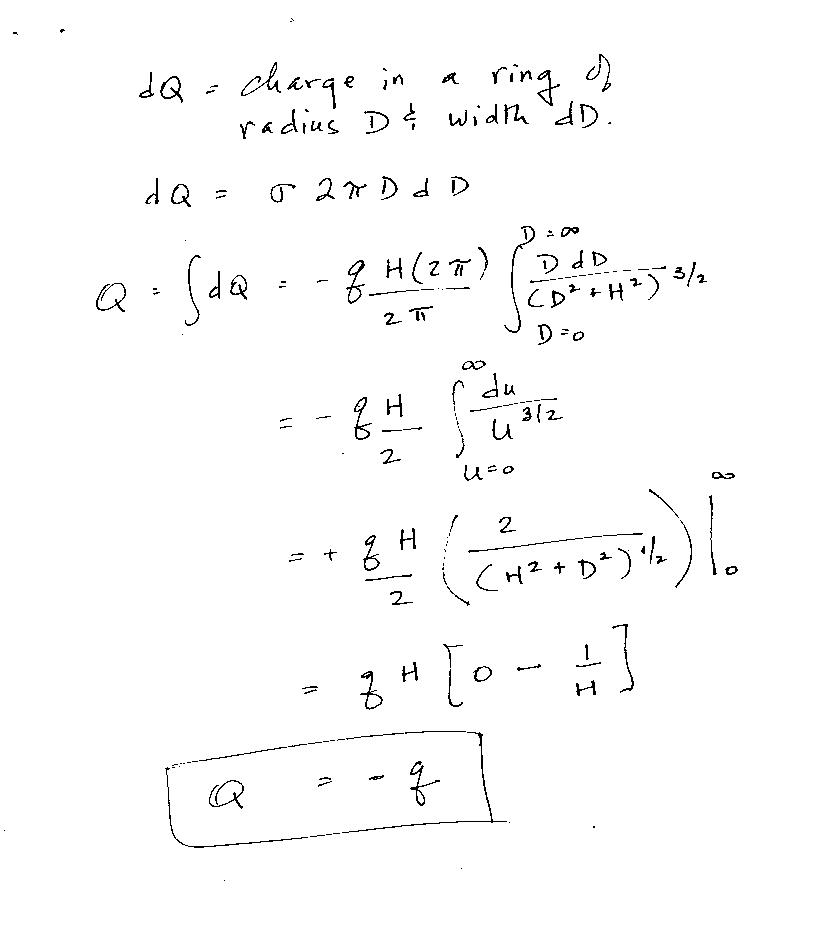 dQ = charge in a ring of
radius D & width dD.
dQ = σ 2π D d D
Q = ∫ dQ = - q H (2π) / 2π ∫_{D=0}^{D=∞} D dD / (D² + H²)^{3/2}
= - q H / 2 ∫_{u=0}^{∞} du / u^{3/2}
= + q H / 2 ( 2 / (H² + D²)^{1/2} ) |_0^∞
= q H [ 0 - 1/H ]
Q = - q